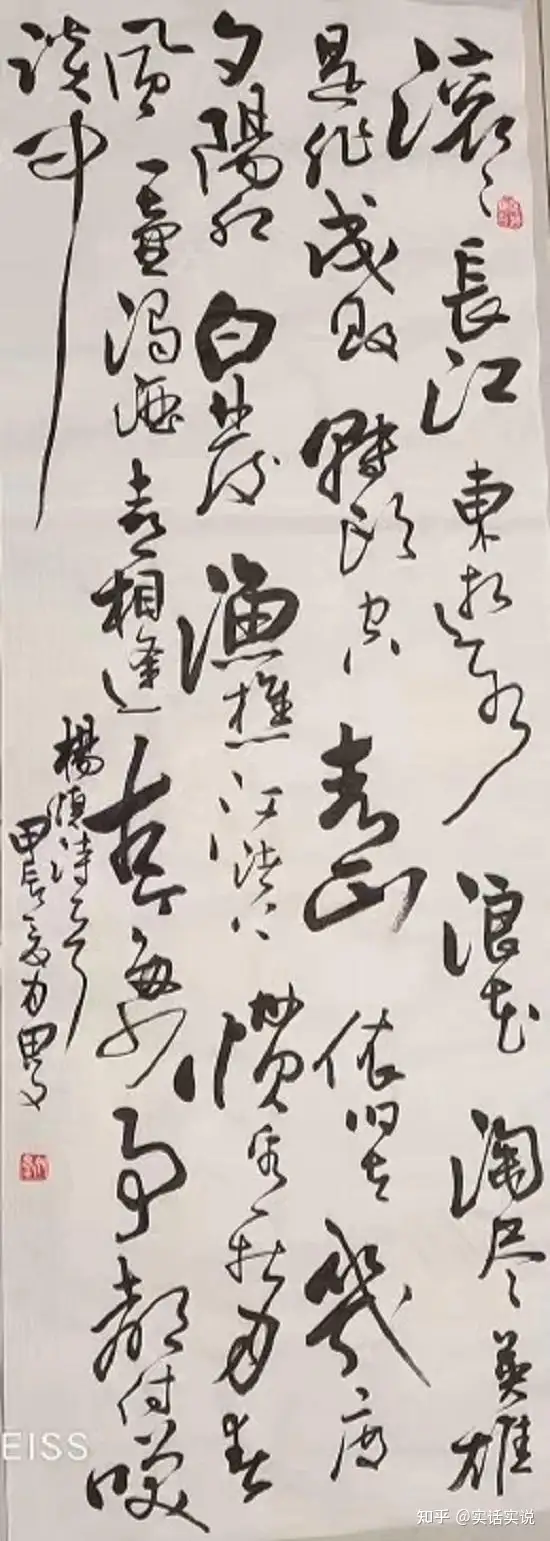 滚滚長江東逝水浪花淘尽英雄
是非成敗轉頭空青山依旧在幾度
夕陽红白髮漁樵江渚上慣看秋月春
風一壺濁酒喜相逢古今多少事都付笑
談中
楊慎詩一首
甲辰
EISS
知乎 @实话实说